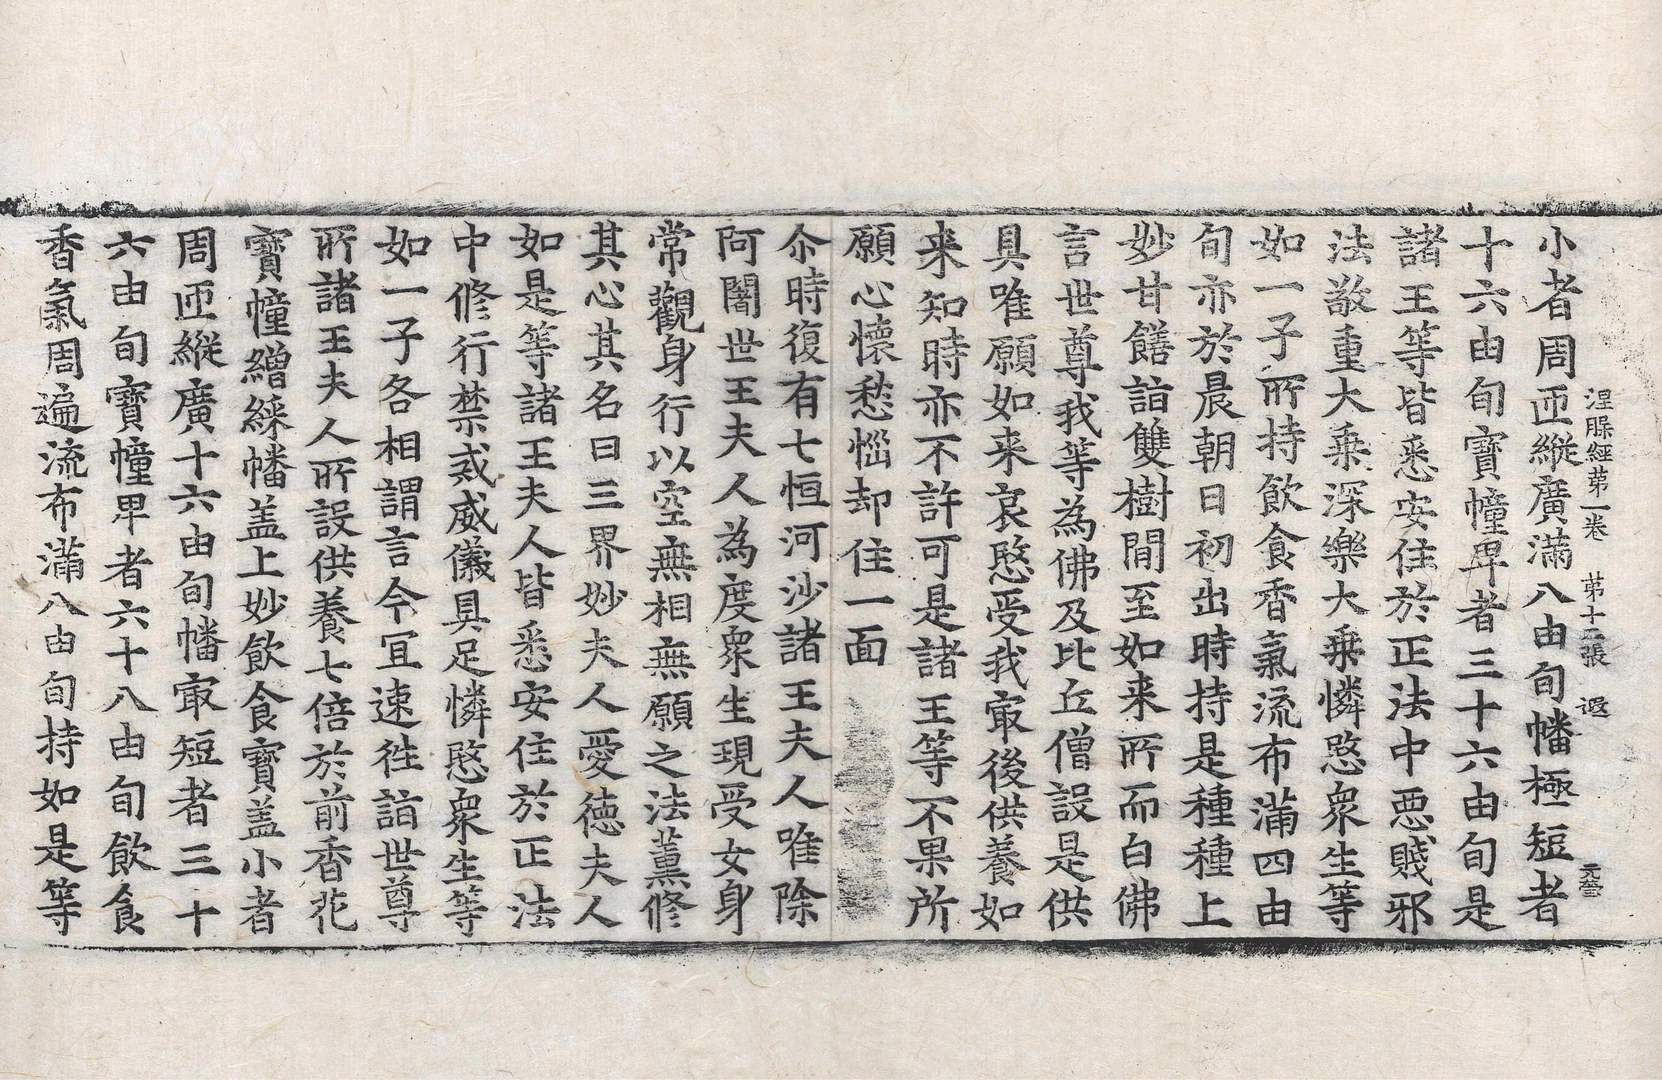 涅槃經第一卷 第十二張 遐 元瑩
小者周迊縱廣滿八由旬幡極短者
十六由旬寶幢卑者三十六由旬是
諸王等皆悉安住於正法中惡賤邪
法敬重大乘深樂大乘憐愍衆生等
如一子所持飲食香氣流布滿四由
旬亦於晨朝日初出時持是種種上
妙甘饍詣雙樹間至如来所而白佛
言世尊我等為佛及比丘僧設是供
具唯願如来哀愍受我㝡後供養如
来知時亦不許可是諸王等不果所
願心懷愁惱却住一面
尒時復有七恒河沙諸王夫人唯除
阿闍世王夫人為度衆生現受女身
常觀身行以空無相無願之法薰修
其心其名曰三界妙夫人愛德夫人
如是等諸王夫人皆悉安住於正法
中修行禁戒威儀具足憐愍衆生等
如一子各相謂言今冝速往詣世尊
所諸王夫人所設供養七倍於前香花
寶幢繒綵幡盖上妙飲食寶盖小者
周迊縱廣十六由旬幡㝡短者三十
六由旬寶幢卑者六十八由旬飲食
香氣周遍流布滿八由旬持如是等